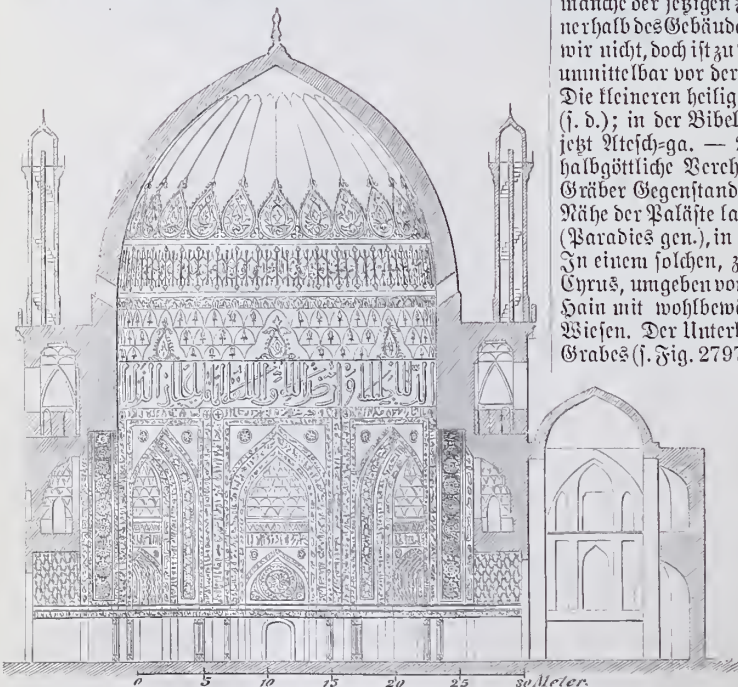 manche der jetzigen
nerhalb des Gebäude
wir nicht, doch ist zu
unmittelbar vor der
Die kleineren heilig
(s. d.); in der Bibel
jetzt Atesch-ga. —
halbgöttliche Vereh
Gräber Gegenstand
Nähe der Paläste la
(Paradies gen.), in
In einem solchen, z
Cyrus, umgeben von
Hain mit wohlbewä
Wiesen. Der Unterb
Grabes (s. Fig. 2797
0 5 10 15 20 25 30 Meter.